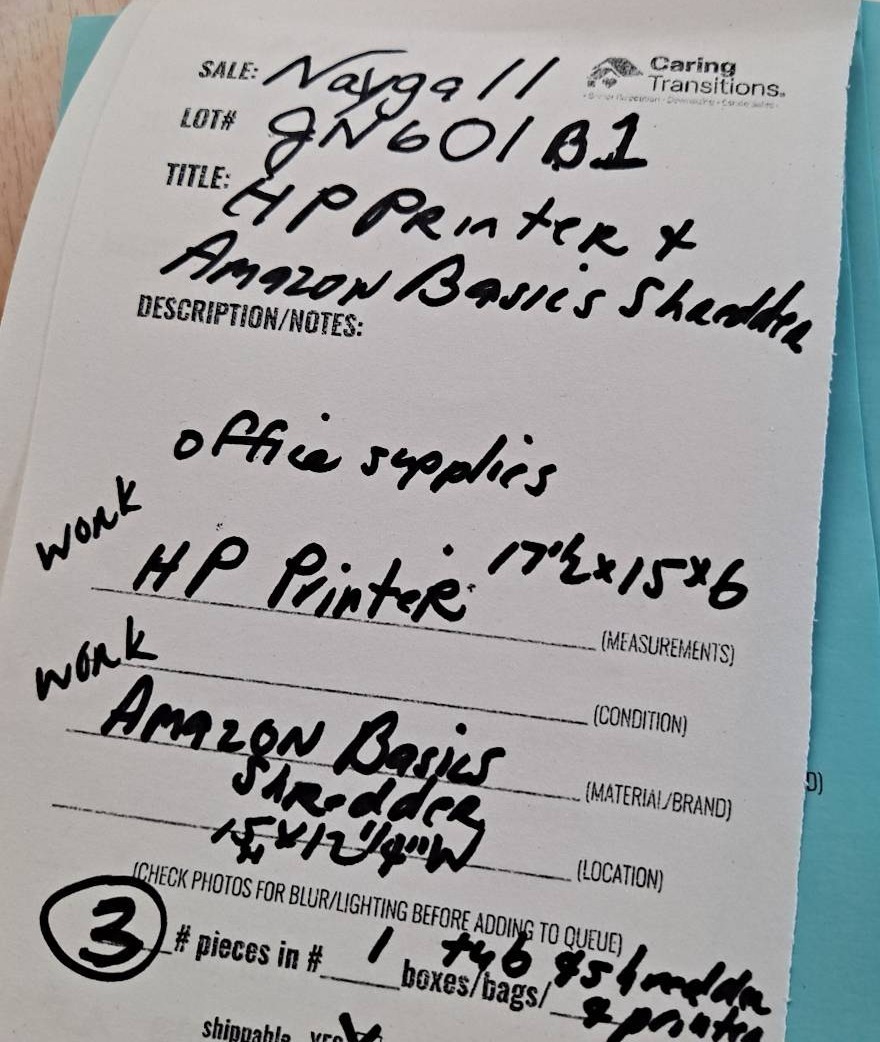 SALE: Naygall
Caring
Transitions.
LOT# JN601B1
TITLE: HP Printer &
Amazon Basics Shredder
DESCRIPTION/NOTES:
office supplies
work
HP Printer 17 1/2 x 15 x 6
(MEASUREMENTS)
work
(CONDITION)
Amazon Basics
(MATERIAL/BRAND)
Shredder
12 1/4" W
(LOCATION)
(CHECK PHOTOS FOR BLUR/LIGHTING BEFORE ADDING TO QUEUE)
3 # pieces in # 1 boxes/bags/ tub & shredder
& printer
shippable YES